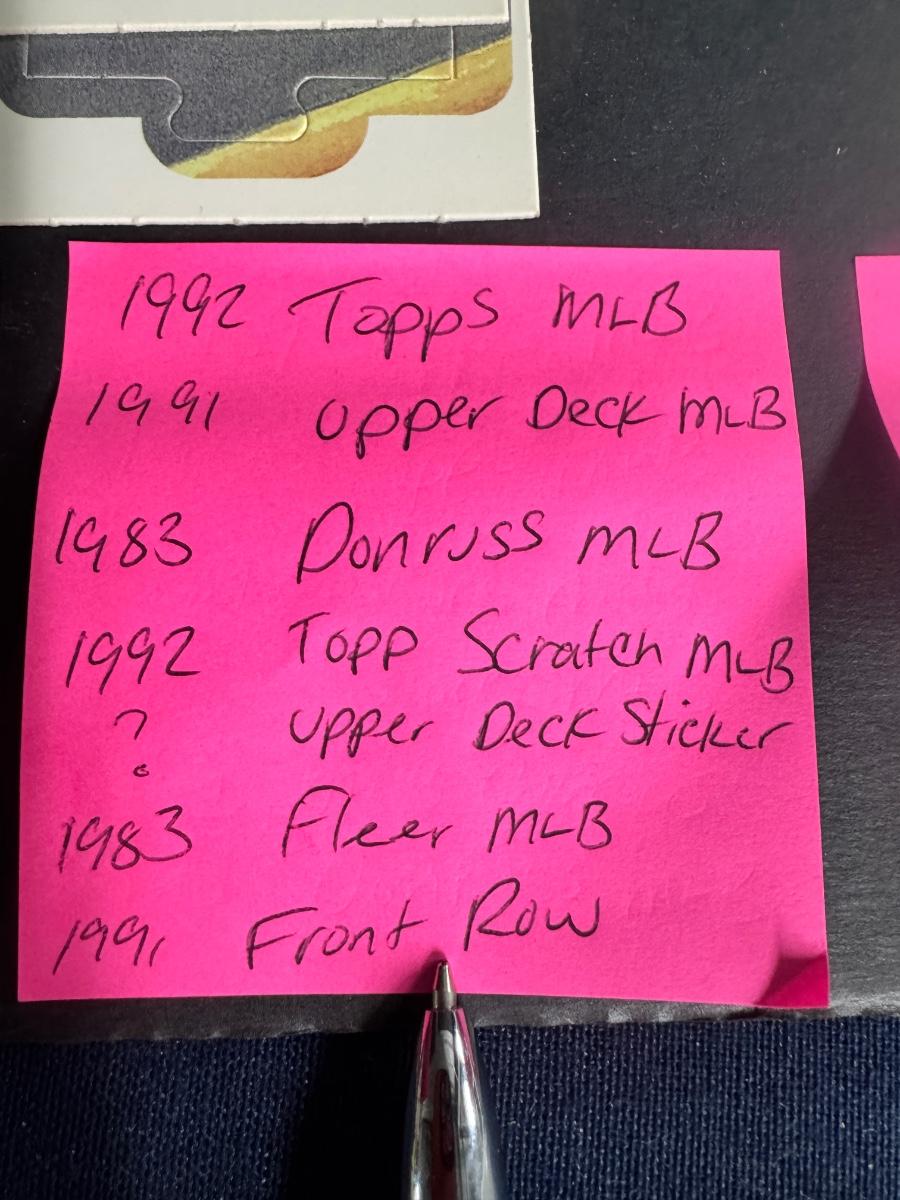 1992 Topps MLB
1991 Upper Deck MLB
1983 Donruss MLB
1992 Topp Scratch MLB
? Upper Deck Sticker
1983 Fleer MLB
1991 Front Row